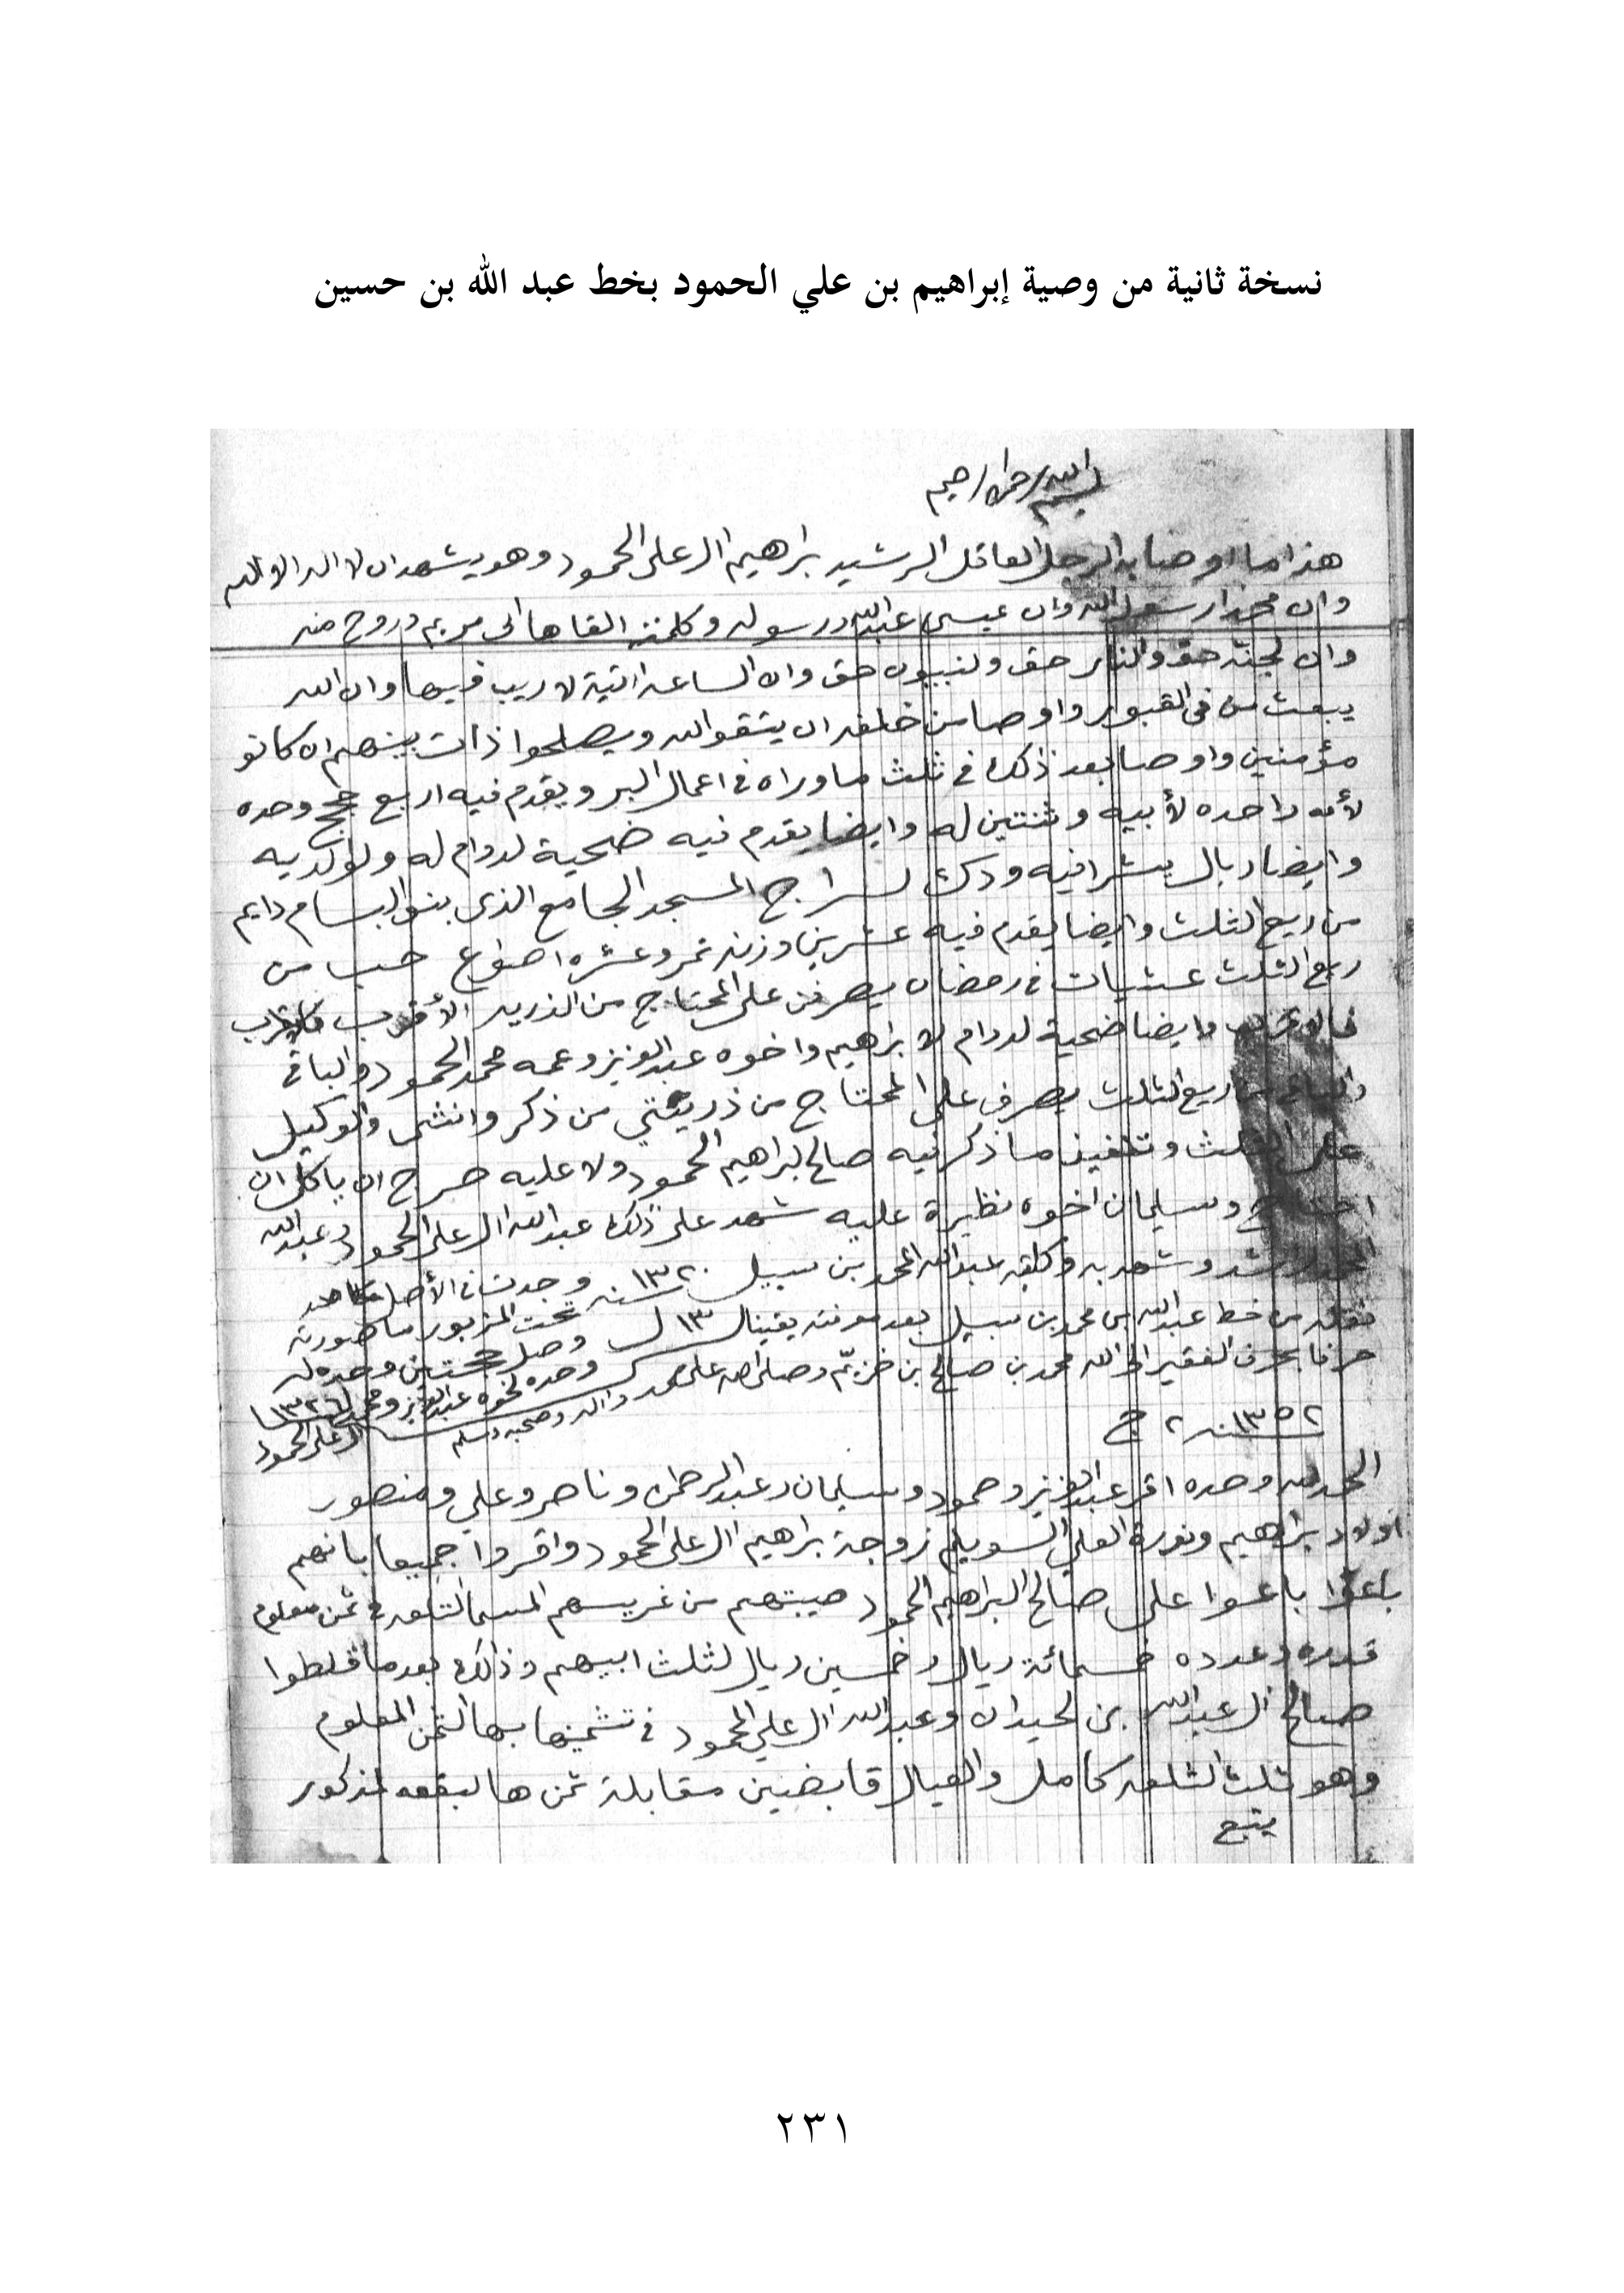 نسخة ثانية من وصية إبراهيم بن علي الحمود بخط عبد الله بن حسين
بسم الله الرحمن الرحيم
هذا ما اوصا به الرجل العاقل الرشيد براهيم ال علي الحمود وهو يشهد ان لا اله الا الله
وان محمدا رسول الله وان عيسى عبد الله ورسوله وكلمته القاها الى مريم وروح منه
وان لجنة حق والنار حق ولنبيون حق وان الساعة اتية لا ريب فيها وان الله
يبعث من في القبور واوصا من خلفه ان يتقو الله ويصلحوا ذات بينهم ان كانو
مؤمنين واوصا بعد ذلك في ثلث ما وراه في اعمال البر ويقدم فيه اربع حجج وحده
لأمه واحده لأبيه وثنتين له وايضا يقدم فيه ضحية لدوام له ولولديه
وايضا ريال يشرا فيه ودك لسراج المسجد الجامع الذي بنو البسام دايم
من ريع الثلث وايضا يقدم فيه عشرين وزنه تمر وعشره اصواع حب من
ريع الثلث عشيات في رمضان يصرفن على المحتاج من الذريه الأقرب فالاقرب
وايضا ضحية لدوام لا براهيم واخوه عبد العزيز وعمه محمد الحمود والباقي
من ريع الثلث يصرف على المحتاج من ذريتي من ذكر وانثى والوكيل
على الثلث وتنفيذ ما ذكر فيه صالح لبراهيم الحمود ولا عليه حرج ان ياكل ان
احتاج وسليمان اخوه نظيرة عليه شهد على ذلك عبد الله ال علي الحمود وعبد الله
وشهد به وكتبه عبد الله المحمد بن سبيل ١٣٢٠ سنه وجدت في الأصل
نقله من خط عبد الله بن محمد بن سبيل بعد معرفته يقينا تحت المزبور ما صورته
حرفا بحرف الفقير الى الله محمد بن صالح بن خزيم وصلى الله على محمد واله وصحبه وسلم
وصل حجتين وحده له
وحده لخوه عبد العزيز ١٣٢٦
ال علي الحمود
١٣٥٢ سنه ٢ ج
الحمد لله وحده اقر عبد العزيز وحمود وسليمان وعبد الرحمن وناصر وعلي ومنصور
اولاد براهيم ونورة العلي السويلم زوجة براهيم ال علي الحمود واقروا جميعا بانهم
باعوا على صالح البراهيم الحمود صيبتهم من غريسهم المسما لتلعه في ثمن معلوم
قدره وعدده خمسمائة ريال وخمسين ريال لثلث ابيهم وذلك بعد ما قلطوا
صالح ال عبد الله بن لحيدان وعبد الله ال علي الحمود في تثمينها بهالثمن المعلوم
وهو ثلث لتلعه كامل والعيال قابضين مقابلة ثمن هالبقعه لمذكور
يتبع
٢٣١